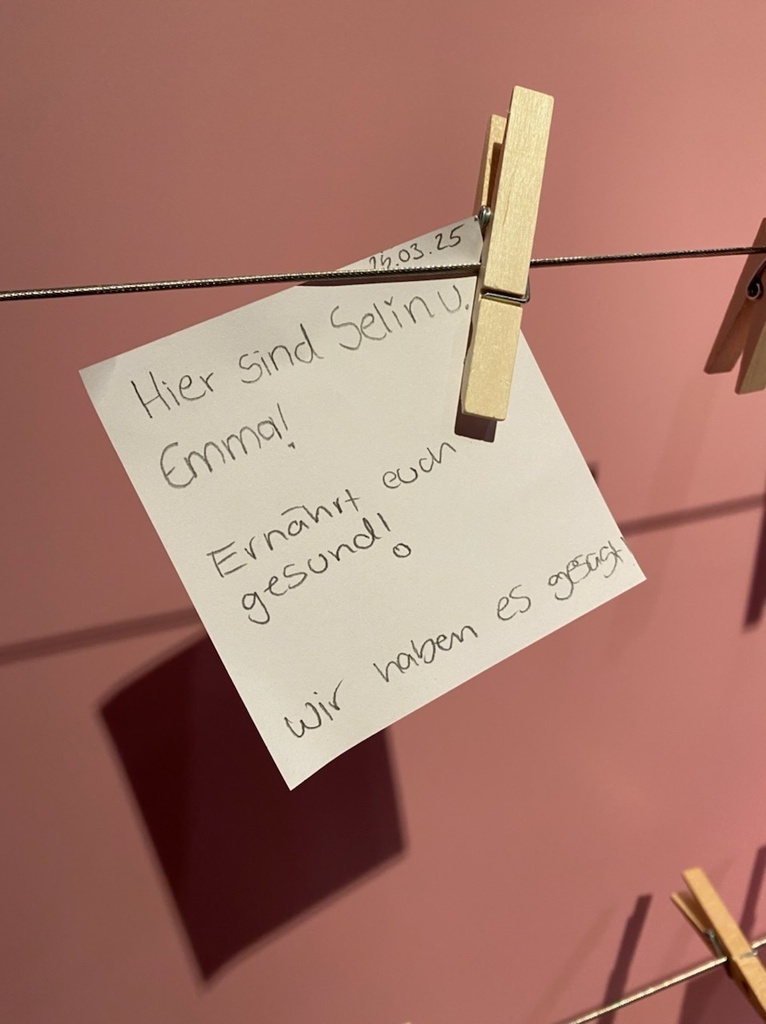 26.03.25
Hier sind Selin u.
Emma!
Ernährt euch
gesund!
Wir haben es gesagt!